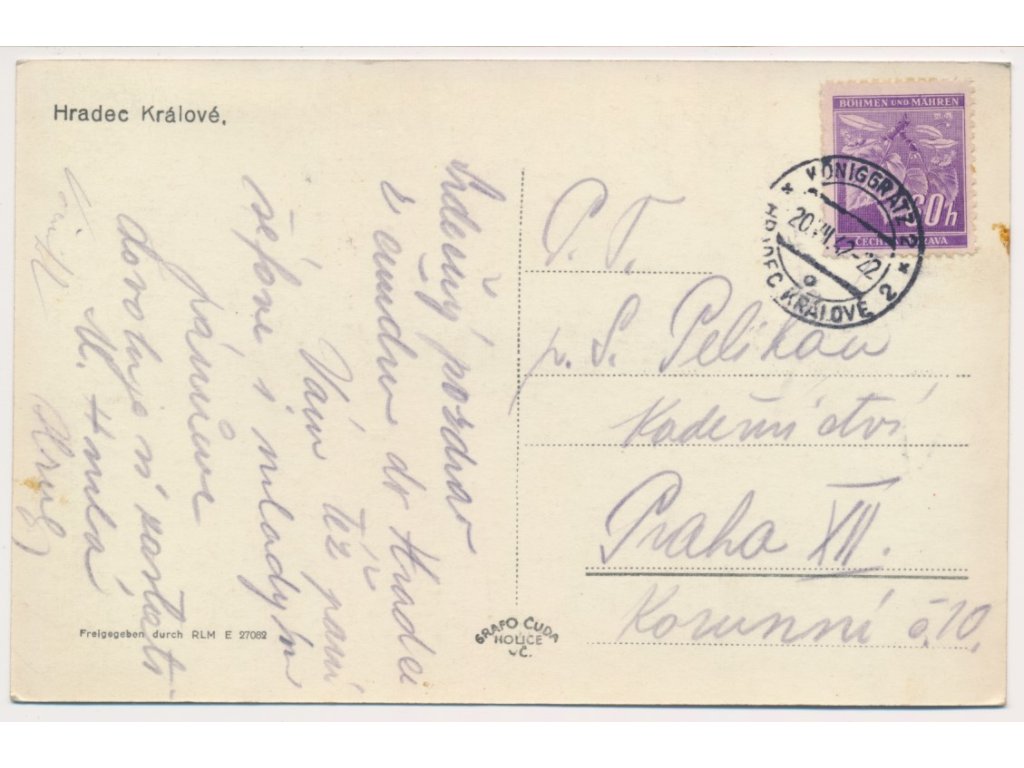 Hradec Králové,
BÖHMEN UND MÄHREN
60h
ČECHY MORAVA
KÖNIGGRÄTZ 2
20.VII.42-22
HRADEC KRÁLOVÉ 2
Srdečný pozdrav
do Hradci
Vám též paní
šéfové i mladým
pánům
dovoluje si zaslati
P. T.
p. S. Pelikan
Kadeřnictví
Praha XII.
Korunní č. 10.
Freigegeben durch RLM E 27062
GRAFO ČUDA
HOLICE
v Č.